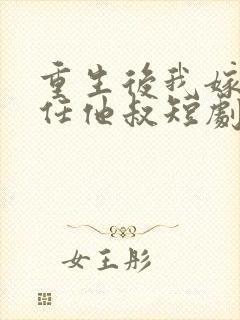 重生後我嫁
任他叔短劇
女王彤